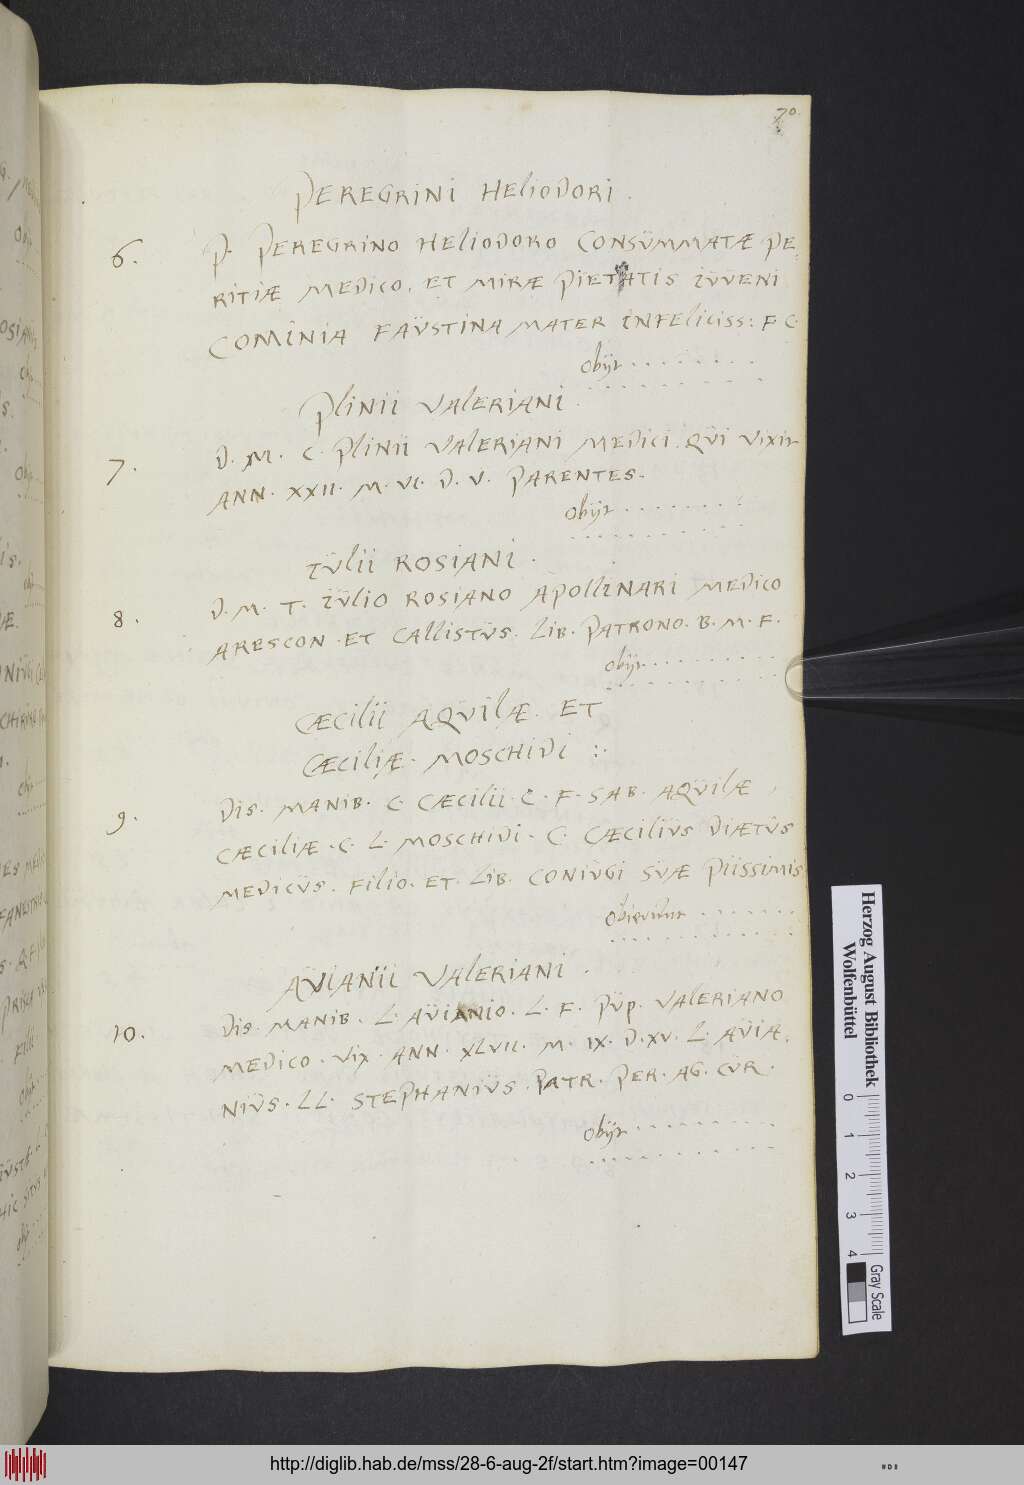 70.
PEREGRINI HELIODORI.
6. P. PEREGRINO HELIODORO CONSÜMMATÆ PE-
RITIÆ MEDICO. ET MIRÆ PIETATIS IÜVENI
COMINIA FAÜSTINA MATER INFELICISS: F C.
obijt . . . . . . . .
PLINII VALERIANI.
7. D. M. C. PLINII VALERIANI MEDICI QÜI VIXIT
ANN. XXII. M. VI. D. V. PARENTES.
obijt . . . . . . . .
IÜLII ROSIANI.
8. D. M. T. IÜLIO ROSIANO APOLLINARI MEDICO
ARESCON. ET CALLISTÜS. LIB. PATRONO. B. M. F.
obijt . . . . . . . .
CÆCILII AQVILÆ ET
CÆCILIÆ. MOSCHIDI :.
9. DIS. MANIB. C. CÆCILII. C. F. SAB. AQÜILÆ,
CÆCILIÆ. C. L. MOSCHIDI. C. CÆCILIÜS DIÆTÜS
MEDICÜS. FILIO. ET. LIB. CONIÜGI SÜÆ PIISSIMIS
obierunt . . . . . .
AÜIANII VALERIANI.
10. DIS. MANIB. L. AÜIANIO. L. F. PÜP. VALERIANO
MEDICO. VIX. ANN. XLVII. M. IX. D. XV. L. AÜIA.
NIÜS. LL. STEPHANIÜS. PATR. PER. AG. CÜR.
obijt . . . . . . . .
Herzog August Bibliothek
Wolfenbüttel
0 1 2 3 4
Gray Scale
http://diglib.hab.de/mss/28-6-aug-2f/start.htm?image=00147